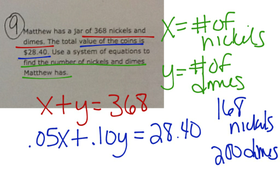 9
Matthew has a jar of 368 nickels and
dimes. The total value of the coins is
$28.40. Use a system of equations to
find the number of nickels and dimes
Matthew has.
x = # of
nickels
y = # of
dimes
x + y = 368
.05x + .10y = 28.40
168
nickels
200 dimes